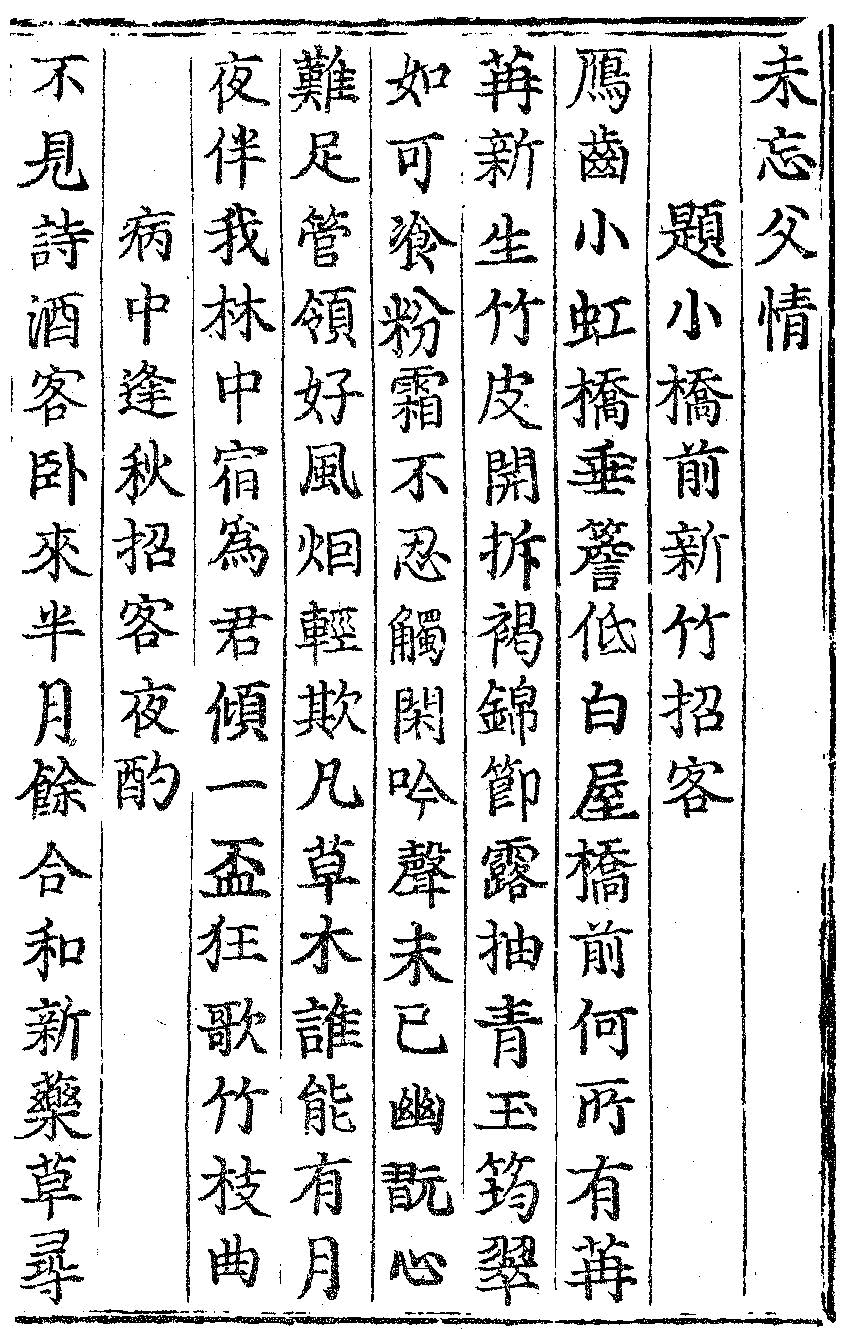 未忘父情
題小橋前新竹招客
鴈齒小虹橋垂簷低白屋橋前何所有苒
苒新生竹皮開拆褐錦節露抽青玉筠翠
如可飡粉霜不忍觸閑吟聲未已幽翫心
難足管領好風烟輕欺凡草木誰能有月
夜伴我林中宿爲君傾一盃狂歌竹枝曲
病中逢秋招客夜酌
不見詩酒客卧來半月餘合和新藥草尋